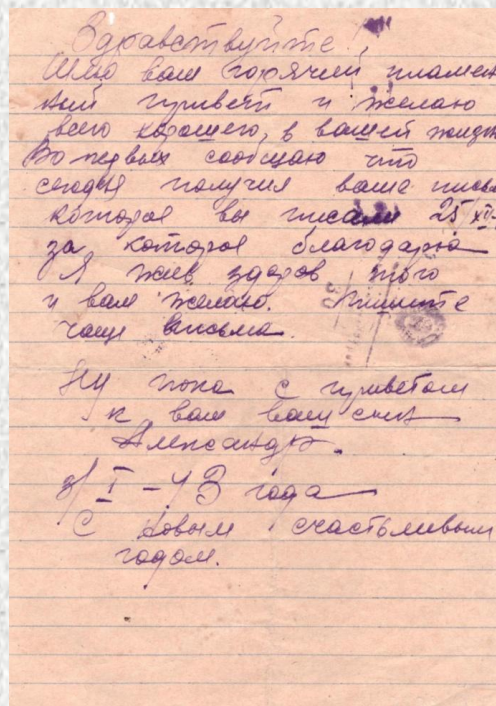 Здравствуйте!
Шлю вам горячий пламен
ный привет и желаю
всего хорошего, в вашей жизни
Во первых сообщаю что
сегодня получил ваше письмо
которое вы писали 25 XII
за которое благодарю
Я жив здоров того
и вам желаю. Пишите
чаще письма.
Ну пока с приветом
к вам ваш сын
Александр.
3/I – 43 года
С новым счастьливым
годом.